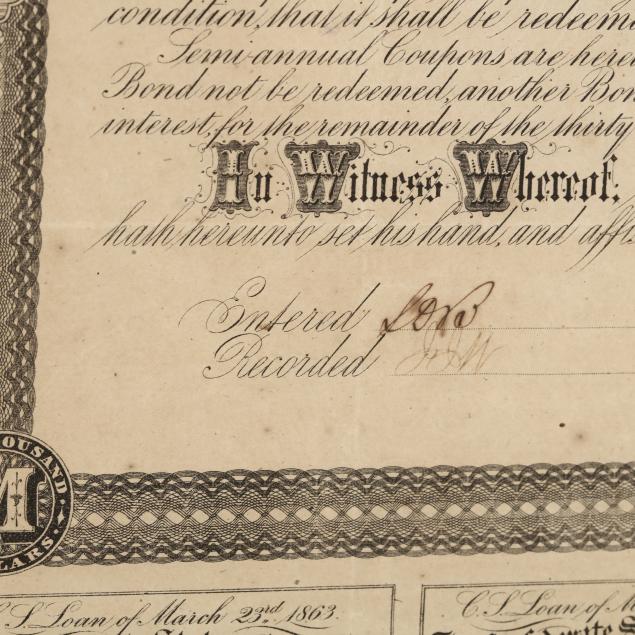 condition, that it shall be redeem
Semi-annual Coupons are her
Bond not be redeemed, another Bon
interest, for the remainder of the thirty
In Witness Whereof,
hath hereunto set his hand, and aff
Entered
Recorded
THOUSAND
M
DOLLARS
C.S. Loan of March 23rd 1863.
C.S. Loan of M